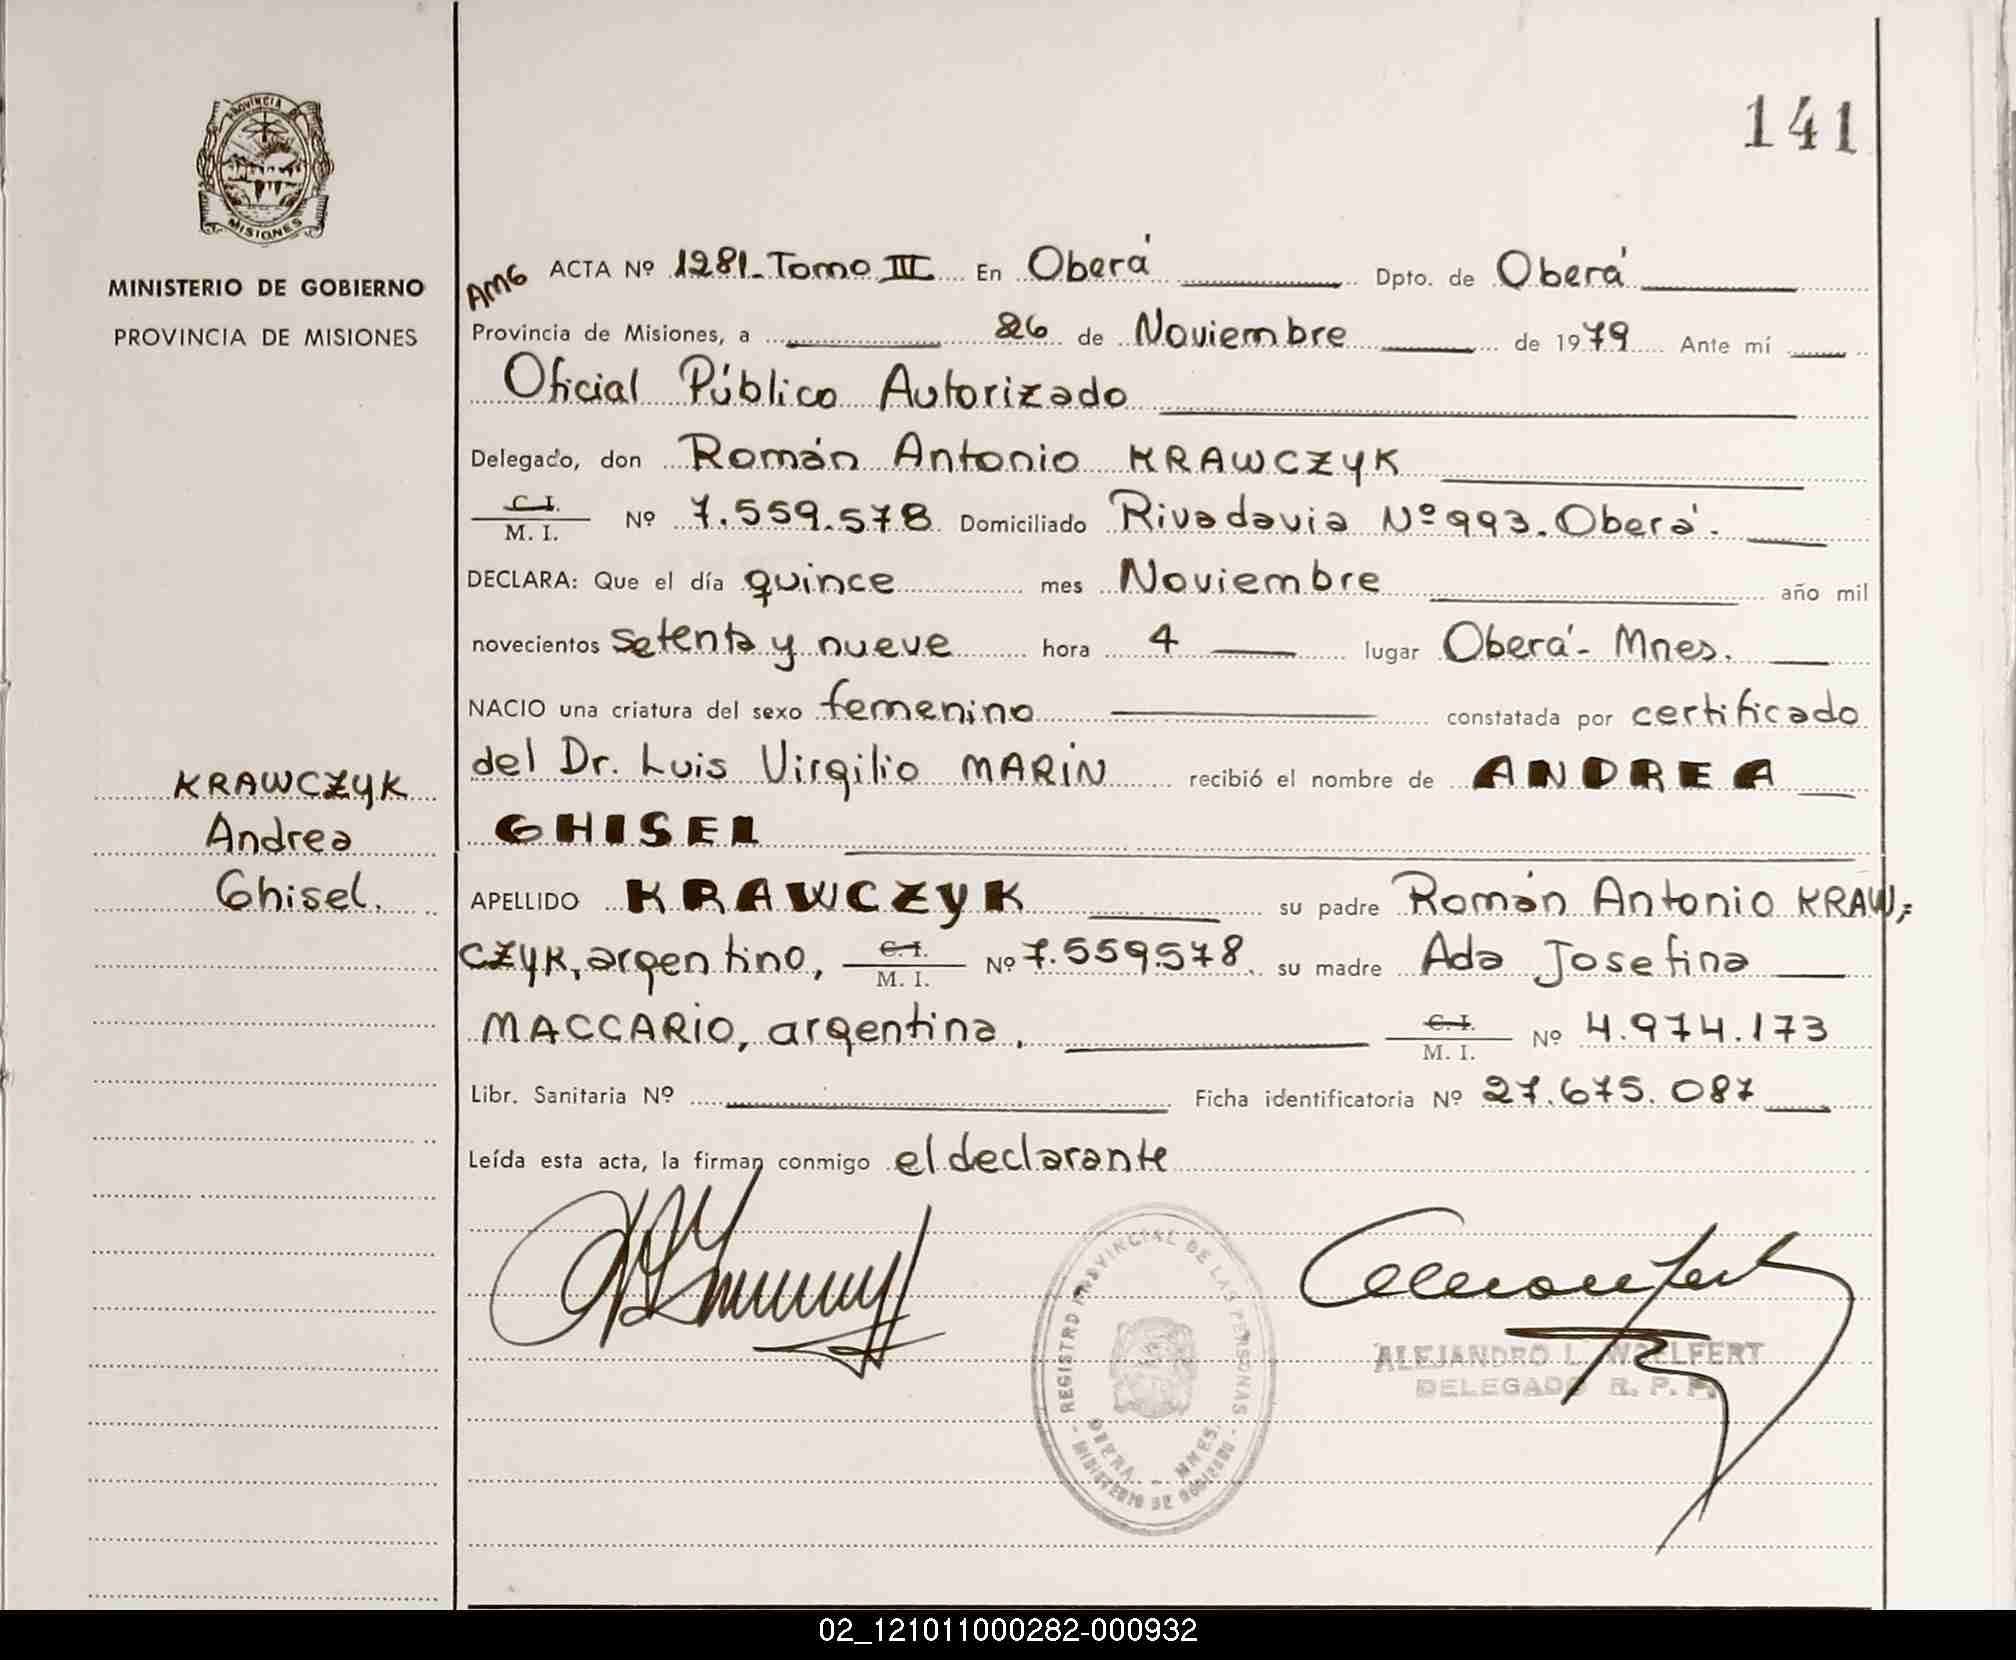 141
PROVINCIA DE
MISIONES
MINISTERIO DE GOBIERNO
PROVINCIA DE MISIONES
AMG ACTA Nº 1281 - Tomo III En Oberá Dpto. de Oberá
Provincia de Misiones, a 26 de Noviembre de 1979 Ante mí
Oficial Público Autorizado
Delegado, don Román Antonio KRAWCZYK
C. I.
M. I. Nº 7.559.578 Domiciliado Rivadavia Nº 993. Oberá.
DECLARA: Que el día quince mes Noviembre año mil
novecientos setenta y nueve hora 4 lugar Oberá - Mnes.
NACIO una criatura del sexo femenino constatada por certificado
del Dr. Luis Virgilio MARIN recibió el nombre de ANDREA
GHISEL
KRAWCZYK
Andrea
Ghisel.
APELLIDO KRAWCZYK su padre Román Antonio KRAW,=
CZYK, argentino, C. I. M. I. Nº 7.559.578. su madre Ada Josefina
MACCARIO, argentina, C. I. M. I. Nº 4.974.173
Libr. Sanitaria Nº Ficha identificatoria Nº 27.675.087
Leída esta acta, la firman conmigo el declarante
REGISTRO PROVINCIAL DE LAS PERSONAS
OBERA - MNES.
MINISTERIO DE GOBIERNO
ALEJANDRO L. WOLFERT
DELEGADO R. P. P.
02_121011000282-000932